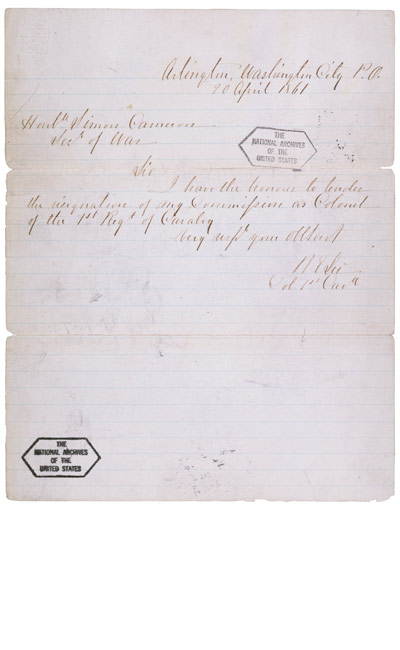 Arlington, Washington City P.O.
20 April 1861
Honble Simon Cameron
Secy of War
Sir
I have the honour to tender
the resignation of my Commission as Colonel
of the 1st Regt of Cavalry
Very respy your Obt Servt
R E Lee
Col 1st Cavy
THE
NATIONAL ARCHIVES
OF THE
UNITED STATES
THE
NATIONAL ARCHIVES
OF THE
UNITED STATES